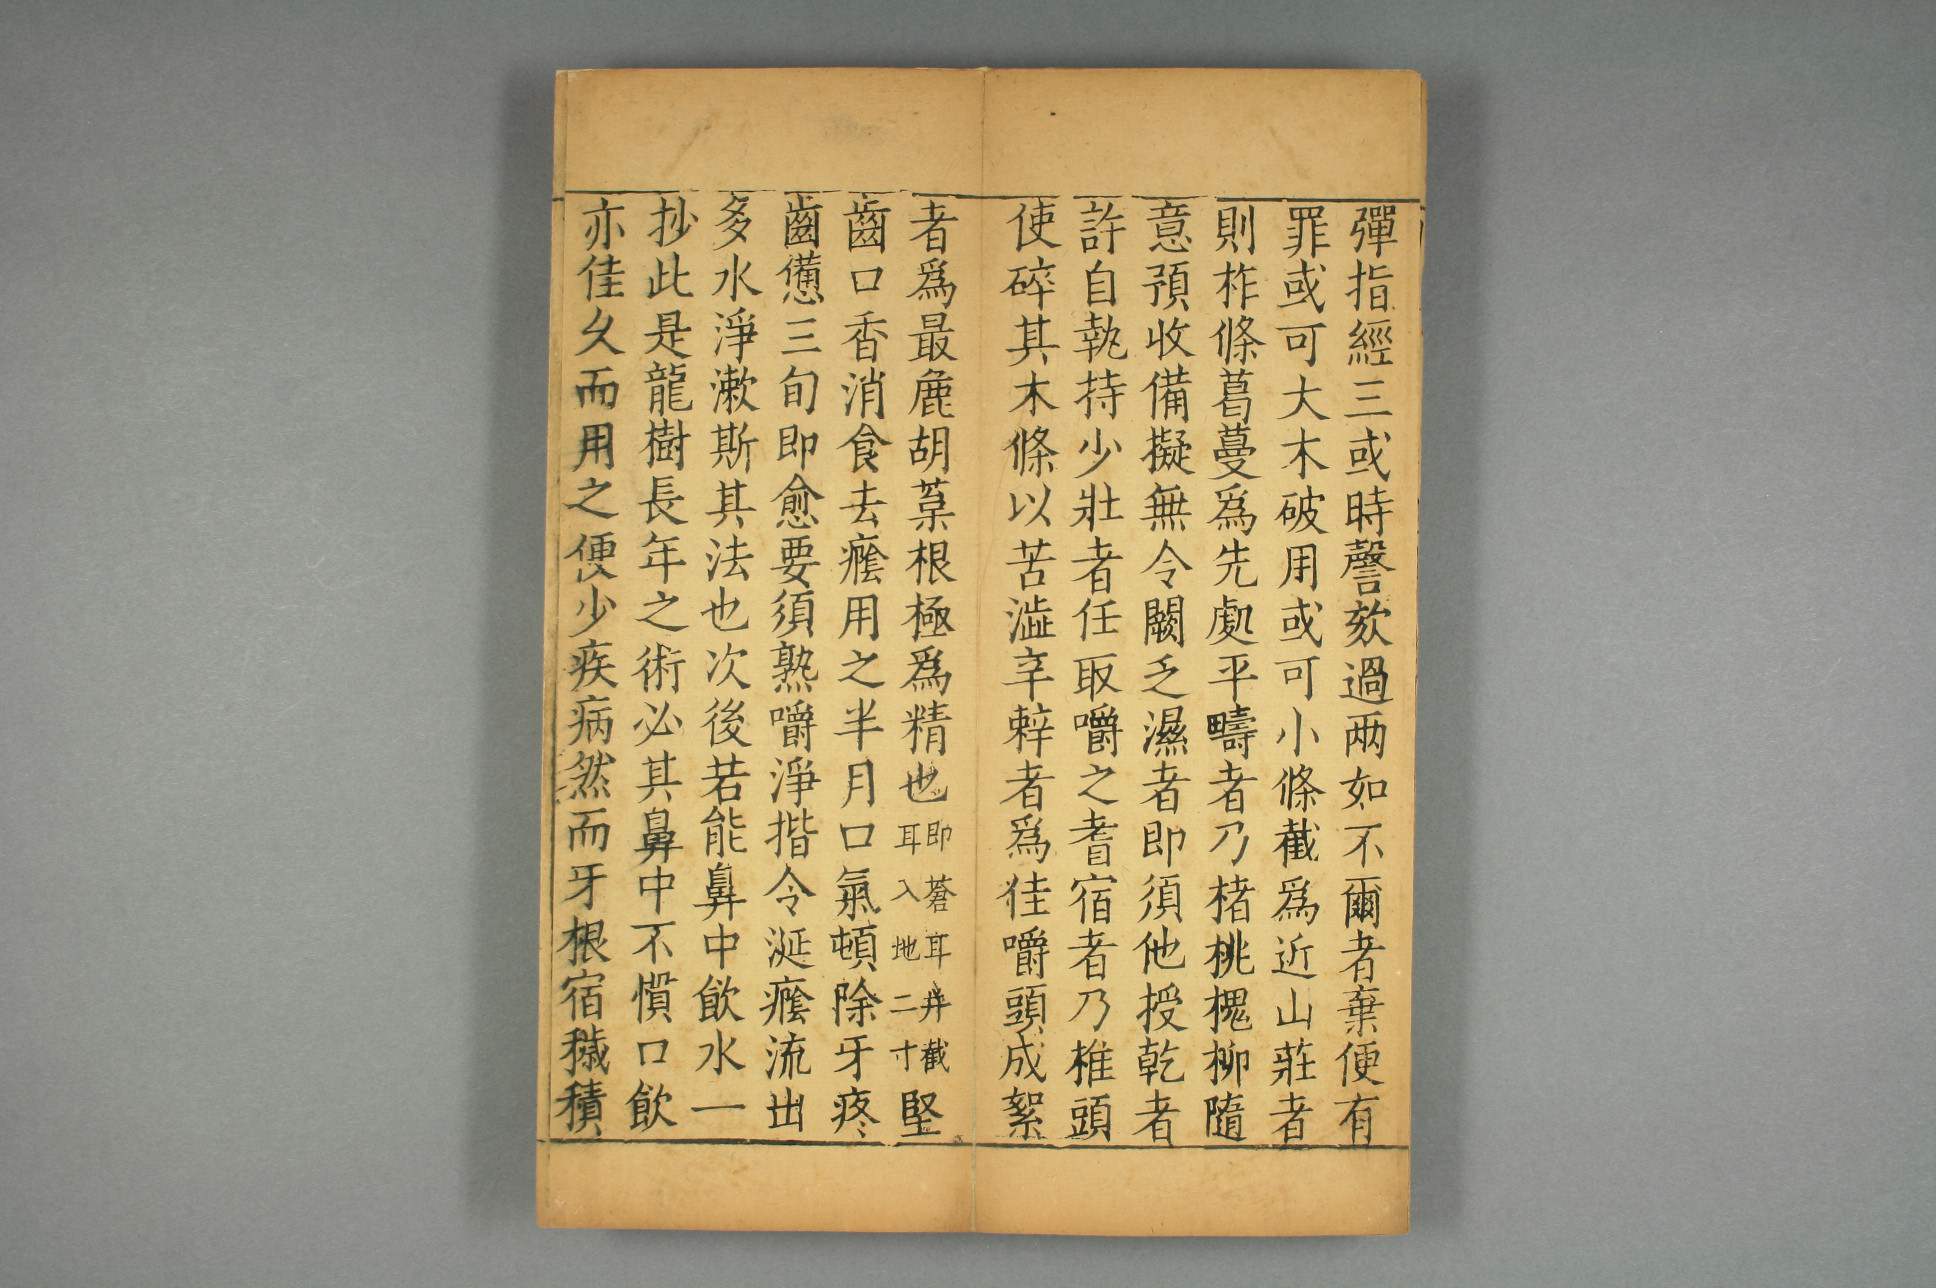 彈指經三或時謦欬過兩如不爾者棄便有
罪或可大木破用或可小條截爲近山莊者
則柞條葛蔓爲先處平疇者乃楮桃槐柳隨
意預收備擬無令闕乏濕者即須他授乾者
許自執持少壯者任取嚼之耆宿者乃椎頭
使碎其木條以苦澁辛辢者爲佳嚼頭成絮
者爲最麁胡葈根極爲精也即蒼耳并截耳入地二寸堅
齒口香消食去癊用之半月口氣頓除牙疼
齒憊三旬即愈要須熟嚼淨揩令涎癊流出
多水淨漱斯其法也次後若能鼻中飲水一
抄此是龍樹長年之術必其鼻中不慣口飲
亦佳久而用之便少疾病然而牙根宿穢積